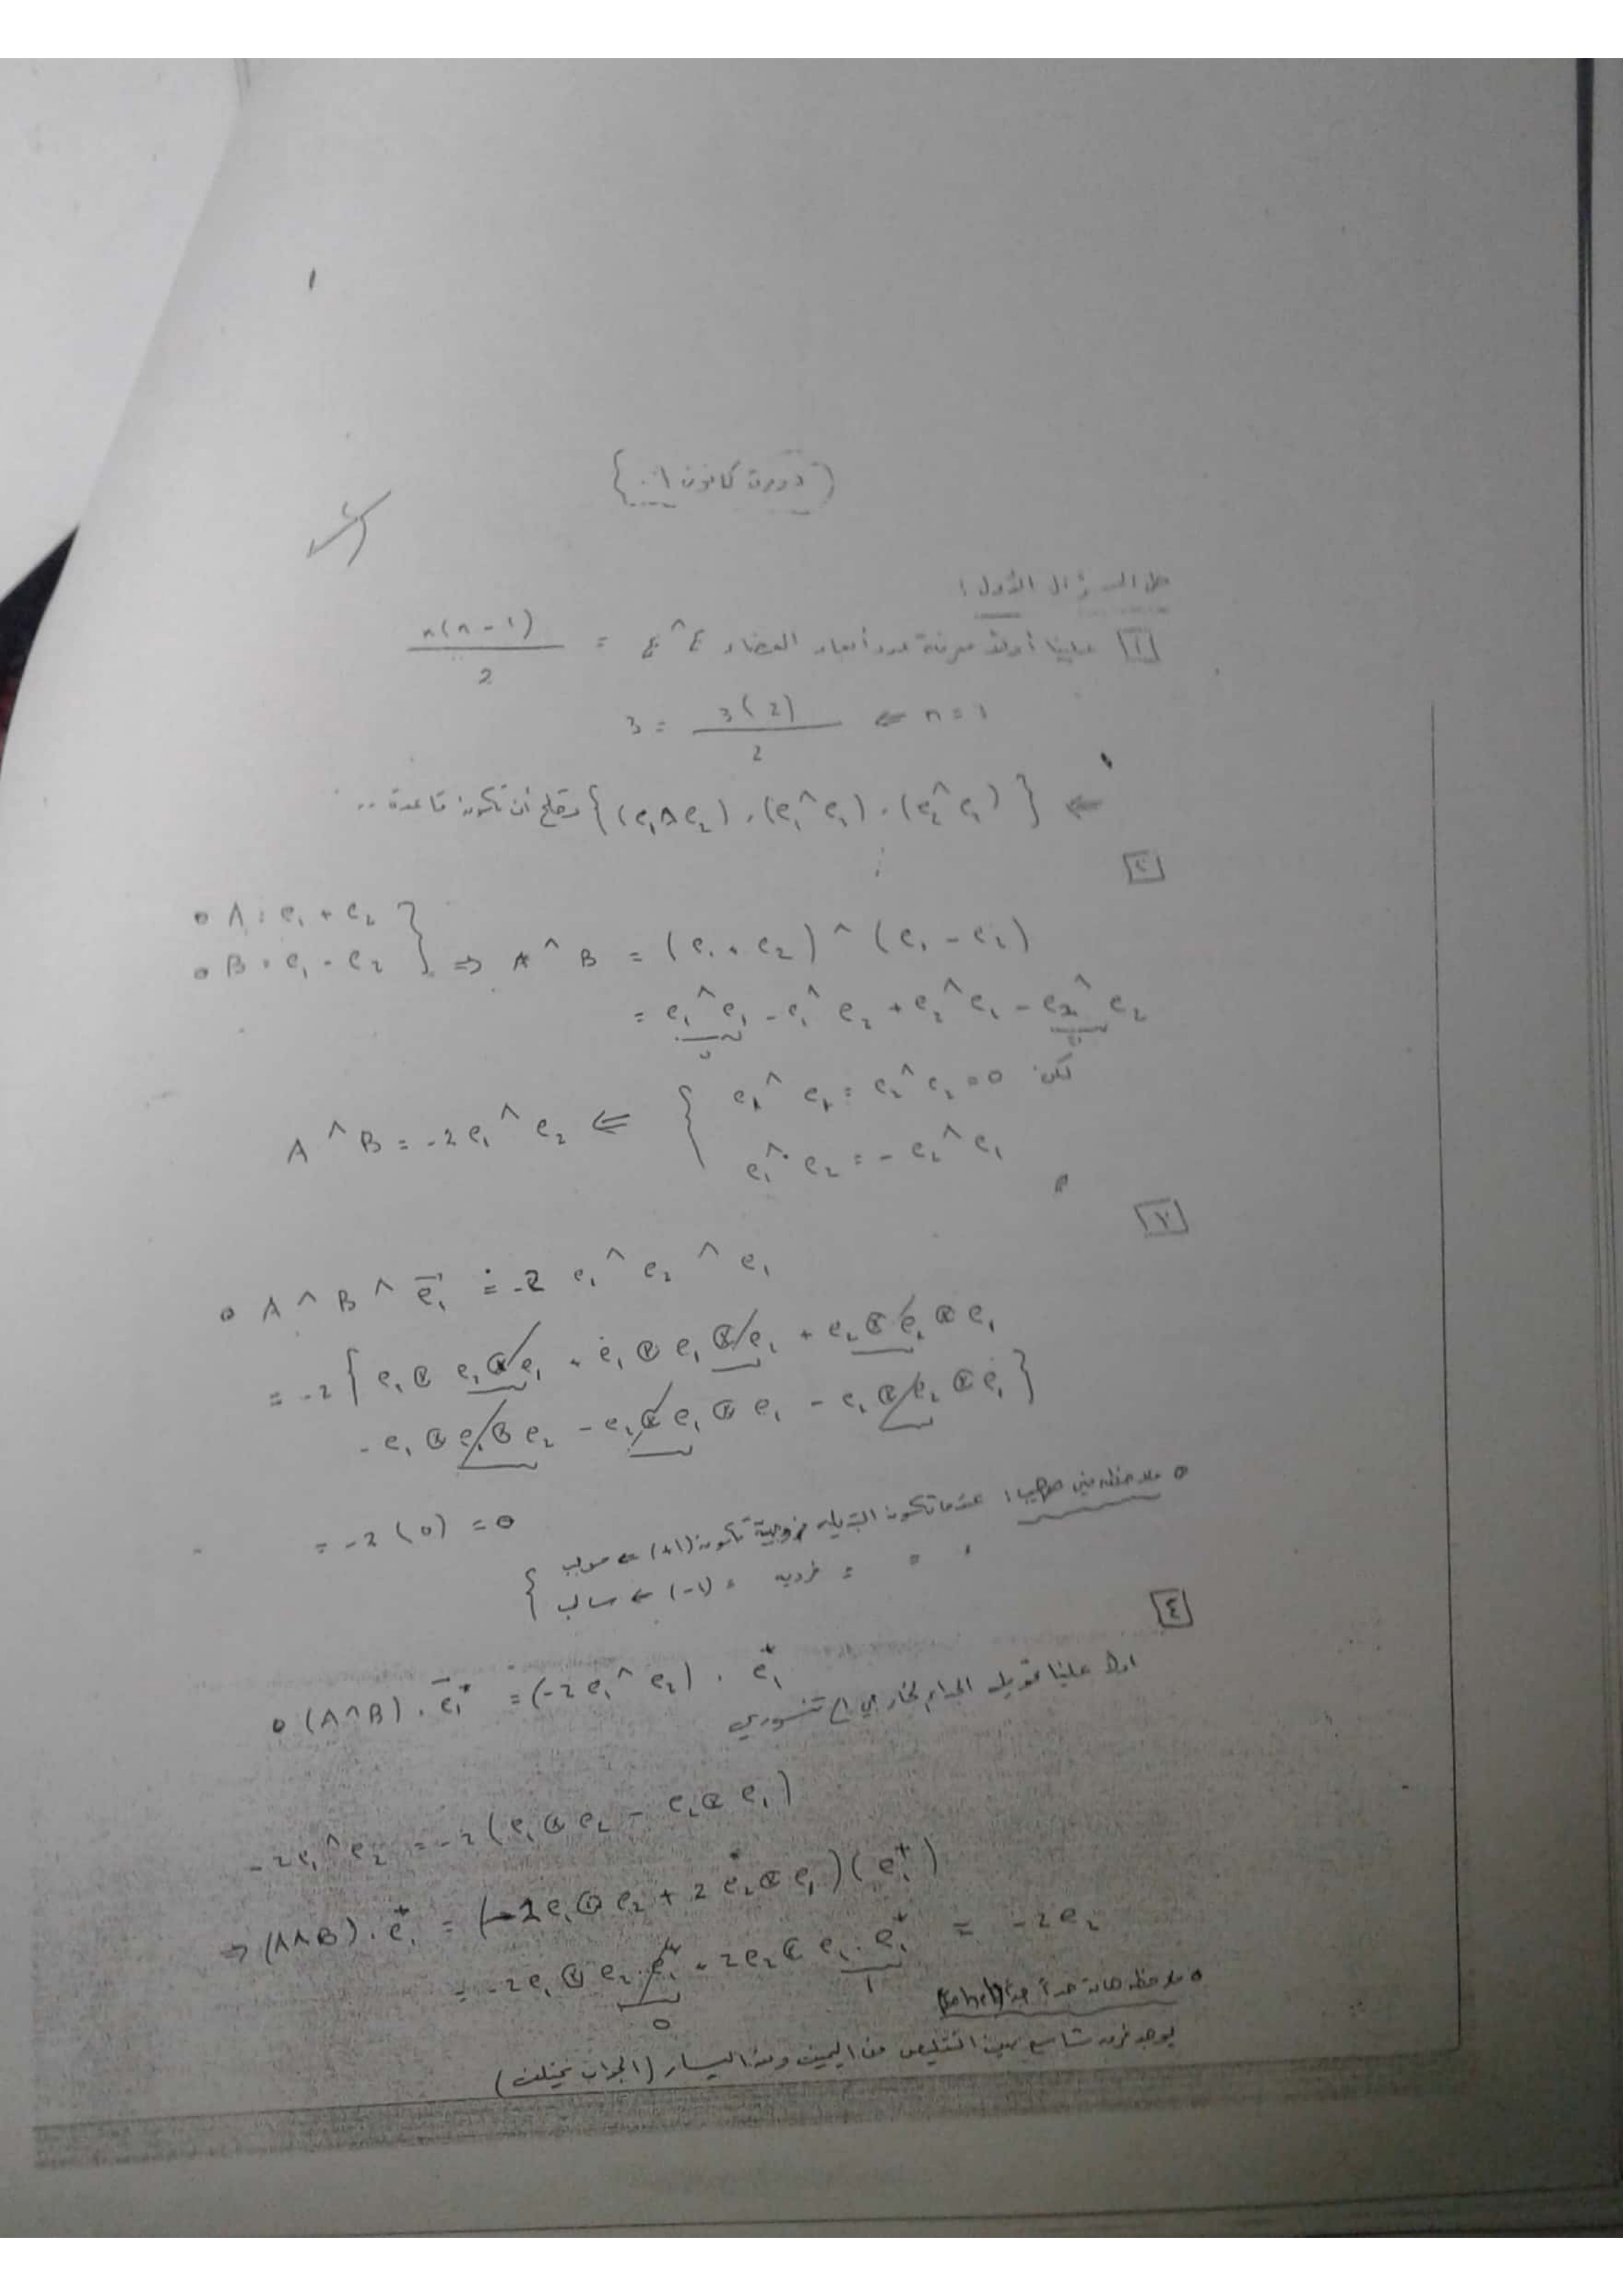 (دورة كانون ١..)
حل السؤال الأول:
[١] علينا أولاً معرفة عدد أبعاد الفضاء E^E = n(n-1)/2
3 = 3(2)/2 ⇐ n = 1
⇐ {(e₁∧e₂), (e₁^e₁), (e₂^e₁)} تصلح أن تكون قاعدة ..
[٢]
• A = e₁ + e₂
• B = e₁ - e₂ } ⇒ A ^ B = (e₁ + e₂) ^ (e₁ - e₂)
= e₁^e₁ - e₁^e₂ + e₂^e₁ - e₂^e₂
لكن e₁^e₁ = e₂^e₂ = 0
A ^ B = -2e₁^e₂ ⇐ { e₁^e₂ = - e₂^e₁
[٣]
• A ^ B ^ e₁ = -2 e₁^e₂^e₁
= -2 { e₁⊗e₂⊗e₁ + e₁⊗e₁⊗e₂ + e₂⊗e₁⊗e₁
- e₁⊗e₁⊗e₂ - e₂⊗e₁⊗e₁ - e₁⊗e₂⊗e₁ }
= -2(0) = 0
• ملاحظة من صهيب: عندما تكون التبديلة زوجية تكون (+1) ⇐ موجب
= = = فردية = (-1) ← سالب
[٤]
• (A∧B) . e₁* = (-2e₁^e₂) . e₁*
اولا علينا تحويل الجداء الخارجي الى تنسوري
-2e₁^e₂ = -2(e₁⊗e₂ - e₂⊗e₁)
⇒ (A∧B) . e₁* = (-2e₁⊗e₂ + 2e₂⊗e₁)(e₁*)
= -2e₁⊗e₂.e₁* + 2e₂⊗e₁.e₁* = -2e₂
0 1
• ملاحظة هامة جداً جداً
يوجد فرق شاسع بين التقليص من اليمين ومن اليسار (الجواب يختلف)